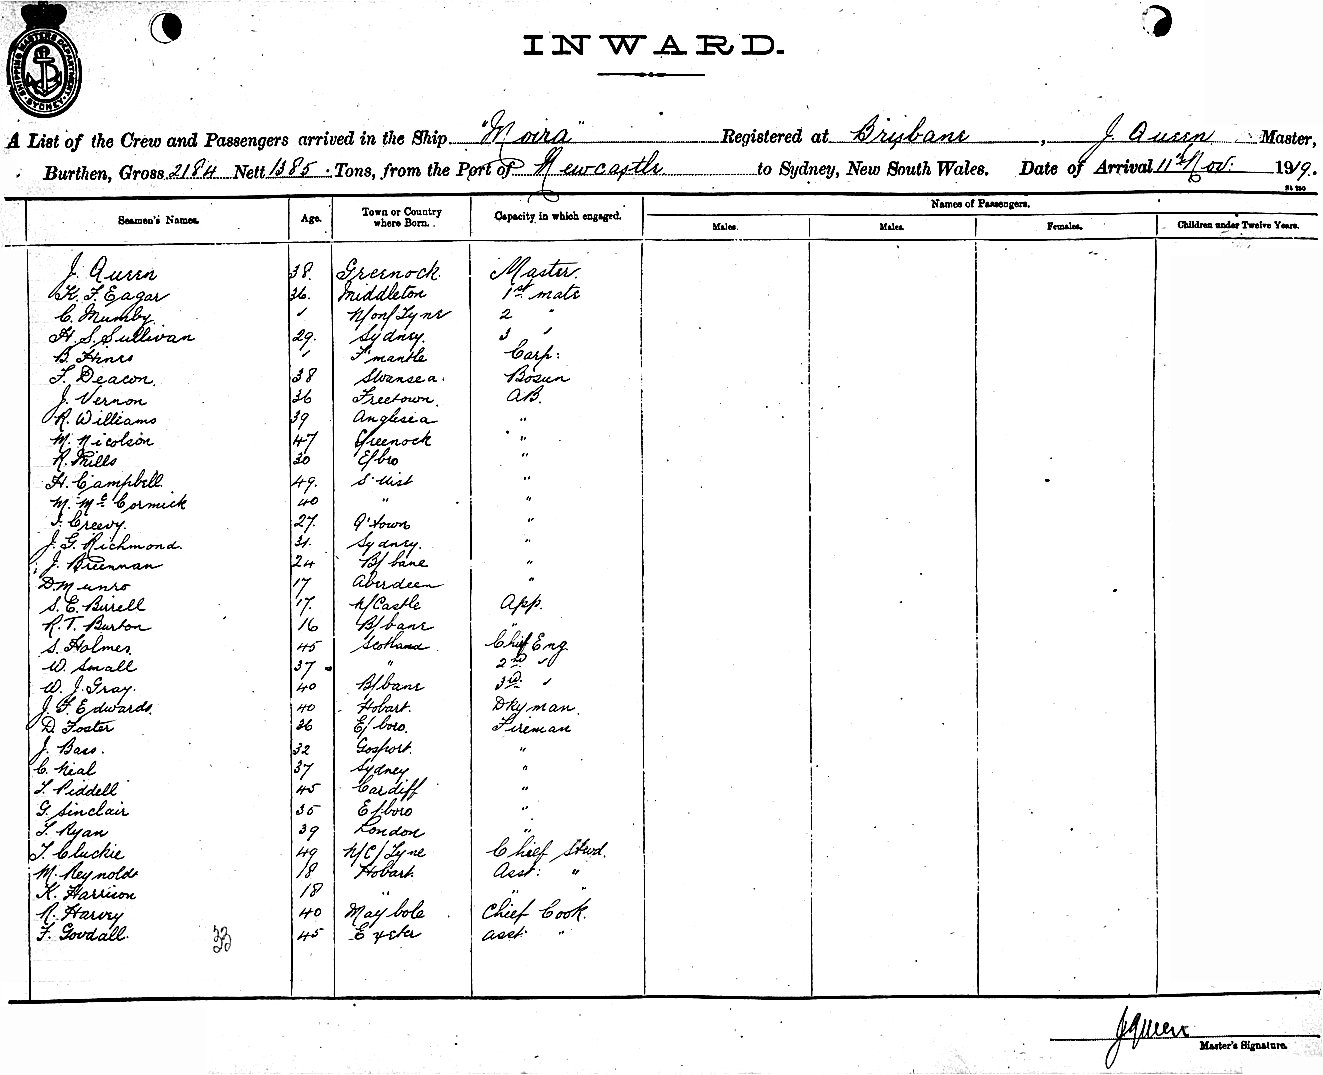 SHIPPING MASTERS DEPARTMENT SYDNEY
INWARD.
A List of the Crew and Passengers arrived in the Ship "Moira" Registered at Brisbane, J. Queen Master,
Burthen, Gross 2184 Nett 1385 Tons, from the Port of Newcastle to Sydney, New South Wales. Date of Arrival 11th Nov. 1919.
Seamen's Names. Age. Town or Country where Born. Capacity in which engaged. Names of Passengers.
Males. Males. Females. Children under Twelve Years.
J. Queen 38. Greenock. Master.
K. F. Eagar 36. Middleton 1st mate
C. Mumby ' N/on/Tyne 2 "
H. S. Sullivan 29. Sydney. 3 '
B. ' F'mantle Carp:
F. Deacon. 38 Swansea. Bosun
J. Vernon 36 Freetown. AB.
R. Williams 39 Anglesea "
M. Nicolson 47 Greenock "
R. Mills 30 E/bro "
H. Campbell. 49. S. Uist "
M. McCormick 40 " "
J. Creevy. 27. Q'town "
J. G. Richmond. 31. Sydney. "
J. Brennan 24 B/bane "
D. Munro 17 Aberdeen "
S. E. Birrell 17. N/Castle App.
R. T. Burton 16 B/bane "
S. Holmes. 45 Scotland Chief Eng.
W. Small 37 " 2nd "
W. J. Gray. 40 B/bane 3rd "
J. F. Edwards. 40 Hobart. Dkyman.
D. Foster 36 E/boro. Fireman
J. Bass. 32 Gosport. "
C. Neal 37 Sydney "
T. Piddell 45 Cardiff "
G. Sinclair 35 E/boro "
T. Ryan 39 London "
T. Cluckie 49 N/C/Tyne Chief Stwd.
M. Reynolds 18 Hobart. Asst: "
K. Harrison 18 " " "
R. Harvey 40 Maybole Chief Cook.
F. Goodall. 33 45 Exeter Asst "
J Queen
Master's Signature.